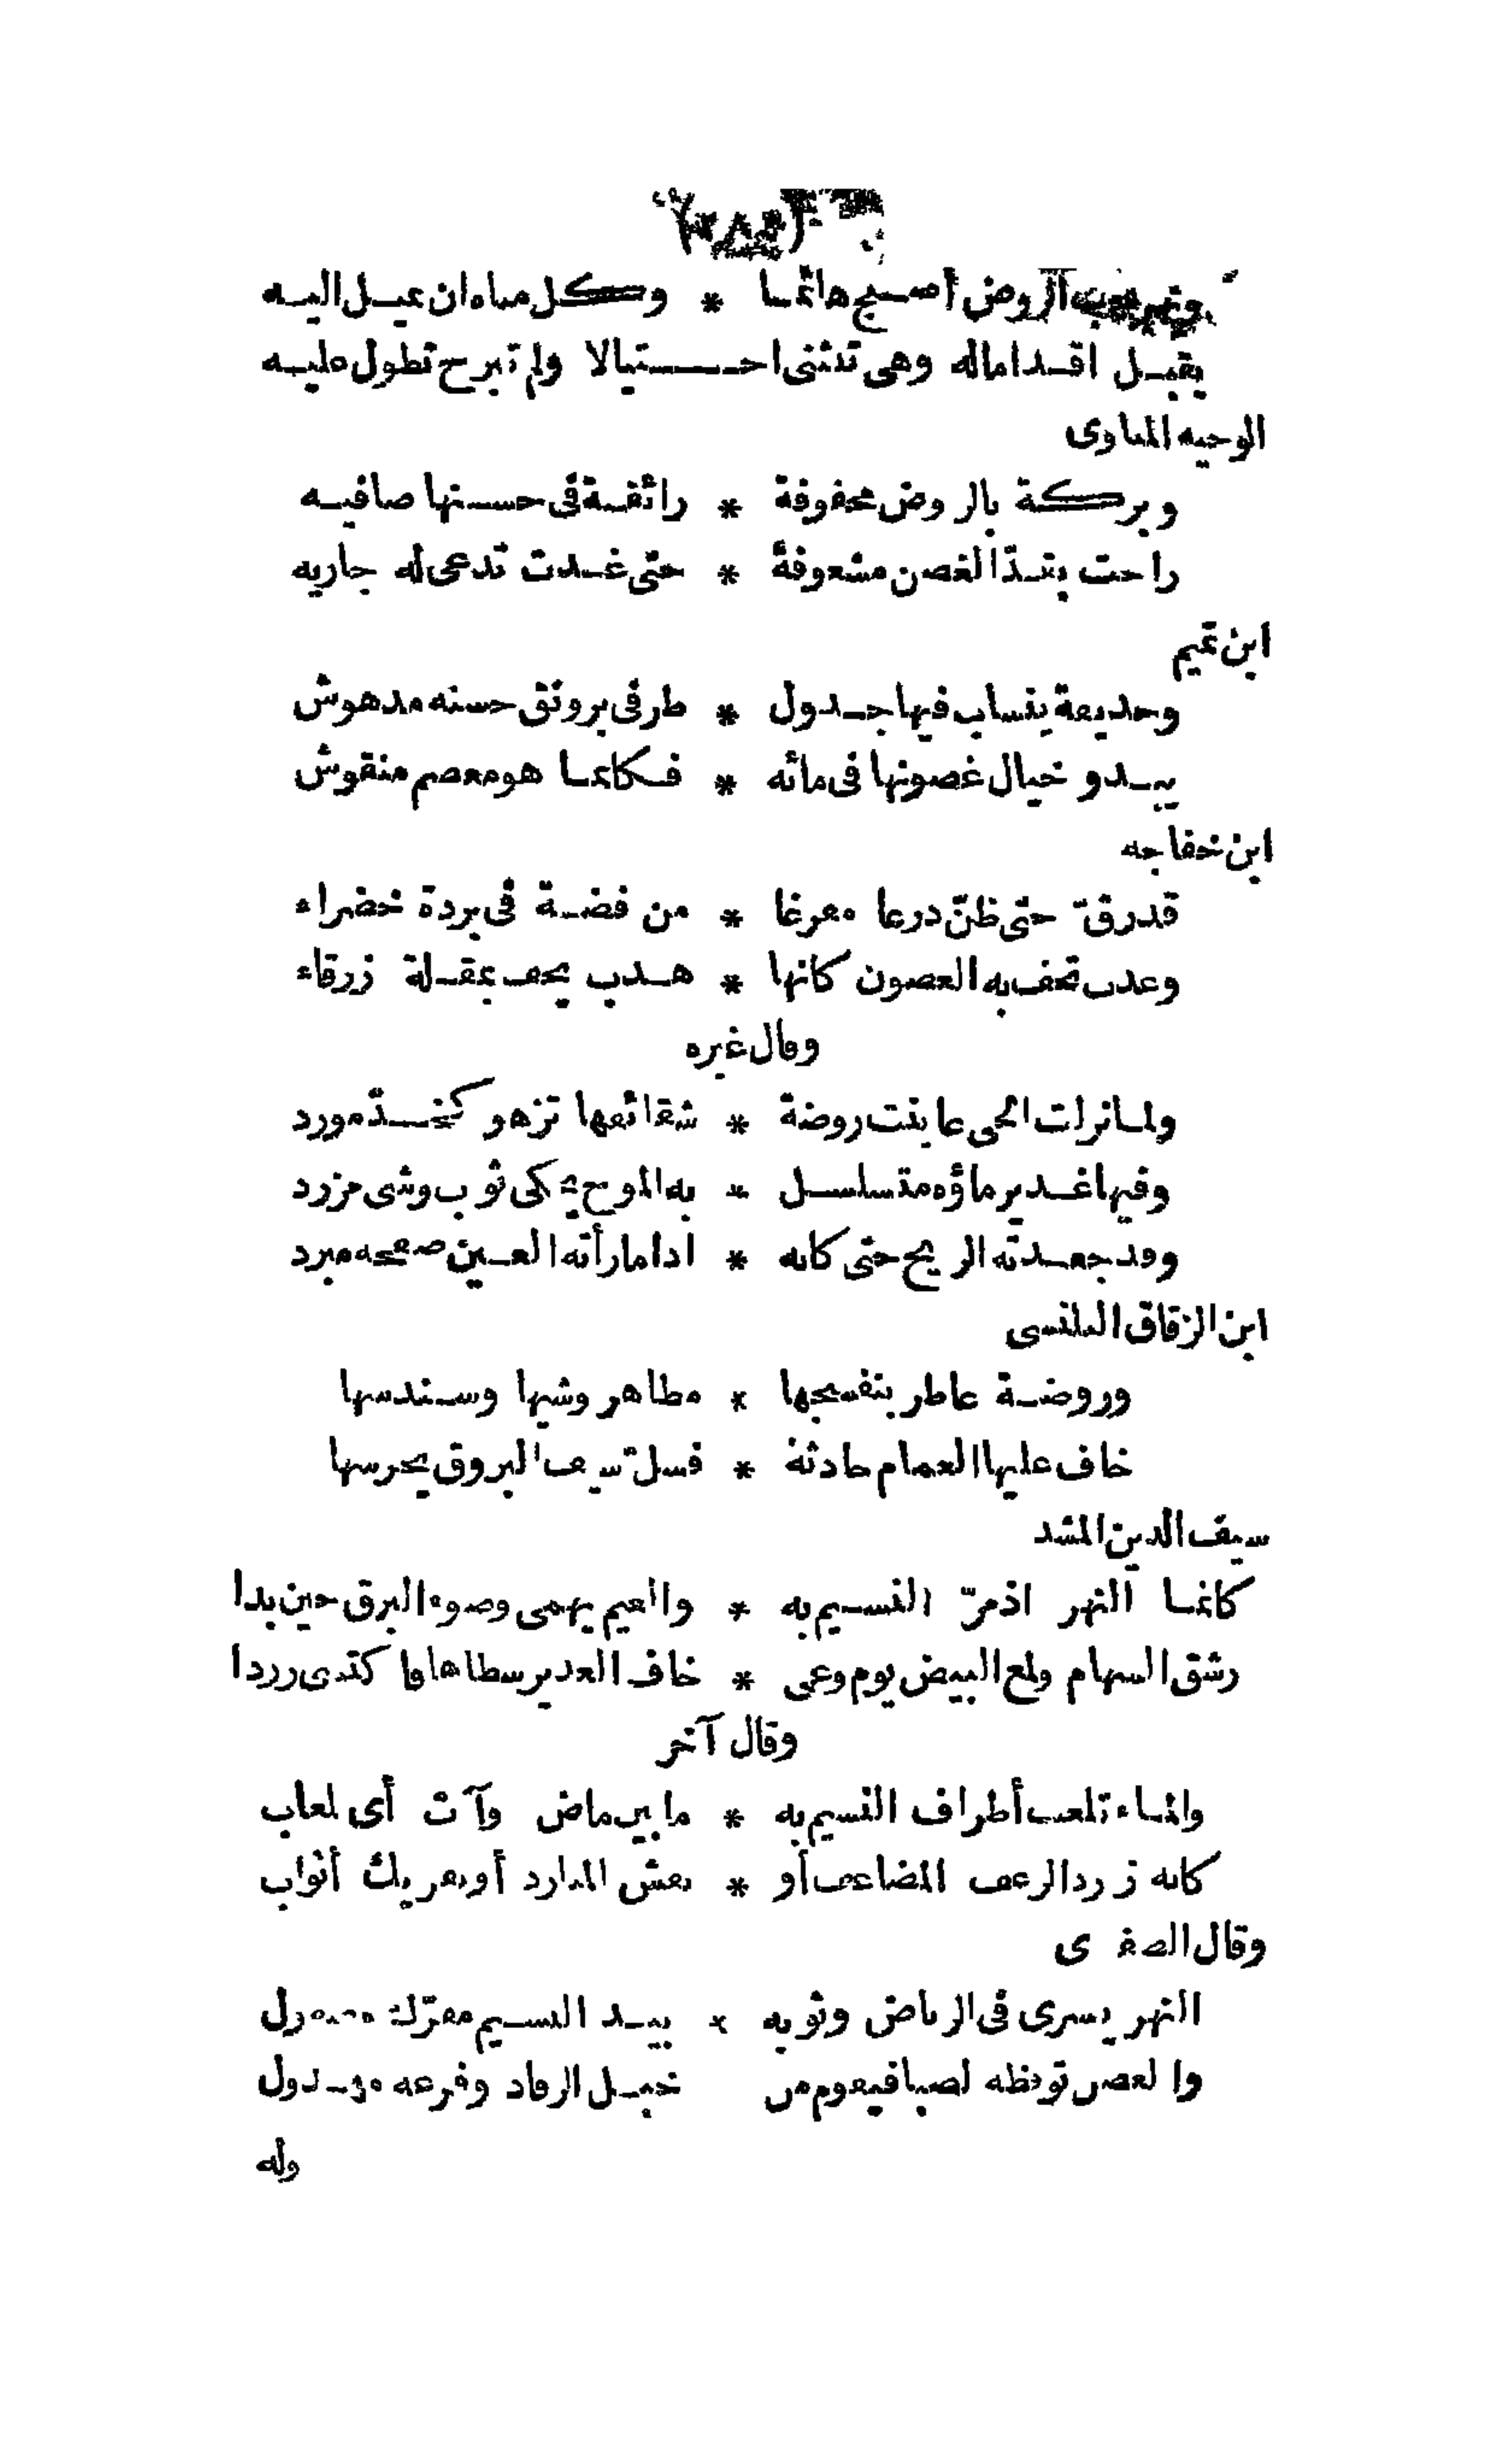 الروض أصبح هائما * وكل مياه ان تميل اليه
يقبل اقداماله وهى تنثنى احتيالا ولم تبرح تطول عليه
الوجيه المناوى
وبركة بالروض محفوفة * رائقة فى حسنها صافيه
راحت بقدّ الغصن مشعوفة * حتى غدت تدعى له جاريه
ابن تميم
وحديقة ينساب فيها جدول * طرفى برونق حسنه مدهوش
يبدو خيال غصونها فى مائه * فكانما هو معصم منقوش
ابن خفاجه
قدرقّ حتى ظنّ درعا مفرغا * من فضة فى بردة خضراء
وغدت تحف به الغصون كانها * هدب يحف بمقلة زرقاء
وقال غيره
ولما نزلت الحى عاينت روضة * شقائقها تزهو كخدّ مورد
وفيها غدير ماؤه متسلسل * به الموج يحكى ثوب وشى مزرد
وقد جعدته الريح حتى كانه * اذا ما رأته العين صفحه مبرد
ابن الزقاق البلنسى
وروضة عاطر بنفسجها * مظاهر وشيها وسندسها
خاف عليها الغمام حادثة * فسلّ سيف البروق يحرسها
سيف الدين المشد
كانما النهر اذ مرّ النسيم به * والغيم يهمى وضوء البرق حين بدا
رشق السهام ولمع البيض يوم وغى * خاف الغدير سطاها فاكتسى زردا
وقال آخر
والماء تلعب أطراف النسيم به * ما بين ماض وآت أى لعاب
كانه زرد الزغف المضاعف أو * نقش المبارد أو تفريك أثواب
وقال الصفدى
النهر يسرى فى الرياض وثوبه * بيد النسيم مفرّك
والغصن توقظه لصبا فيقوم من خبل الرقاد وفرعه مهدول
وله